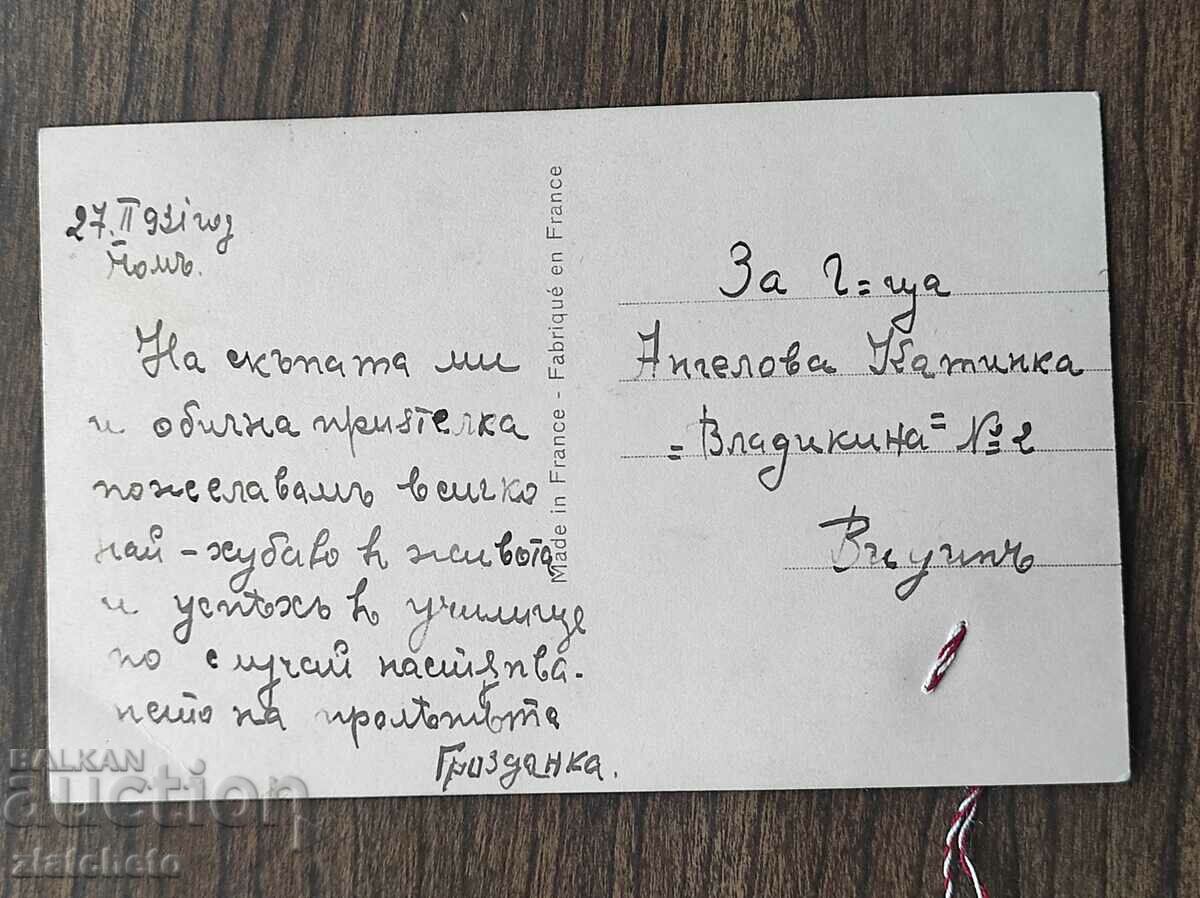 27.II 931 год
Ломъ.
На скъпата ми
и обична приятелка
пожелавамъ всичко
най-хубаво в живота
и успѣхъ в училище
по случай настѫпва-
нето на пролѣтьта
Грозданка.
Made in France - Fabriqué en France
За Г=ца
Ангелова Катинка
=Владикина= № 2
Видинъ
BALKAN
auction
zlatcheto